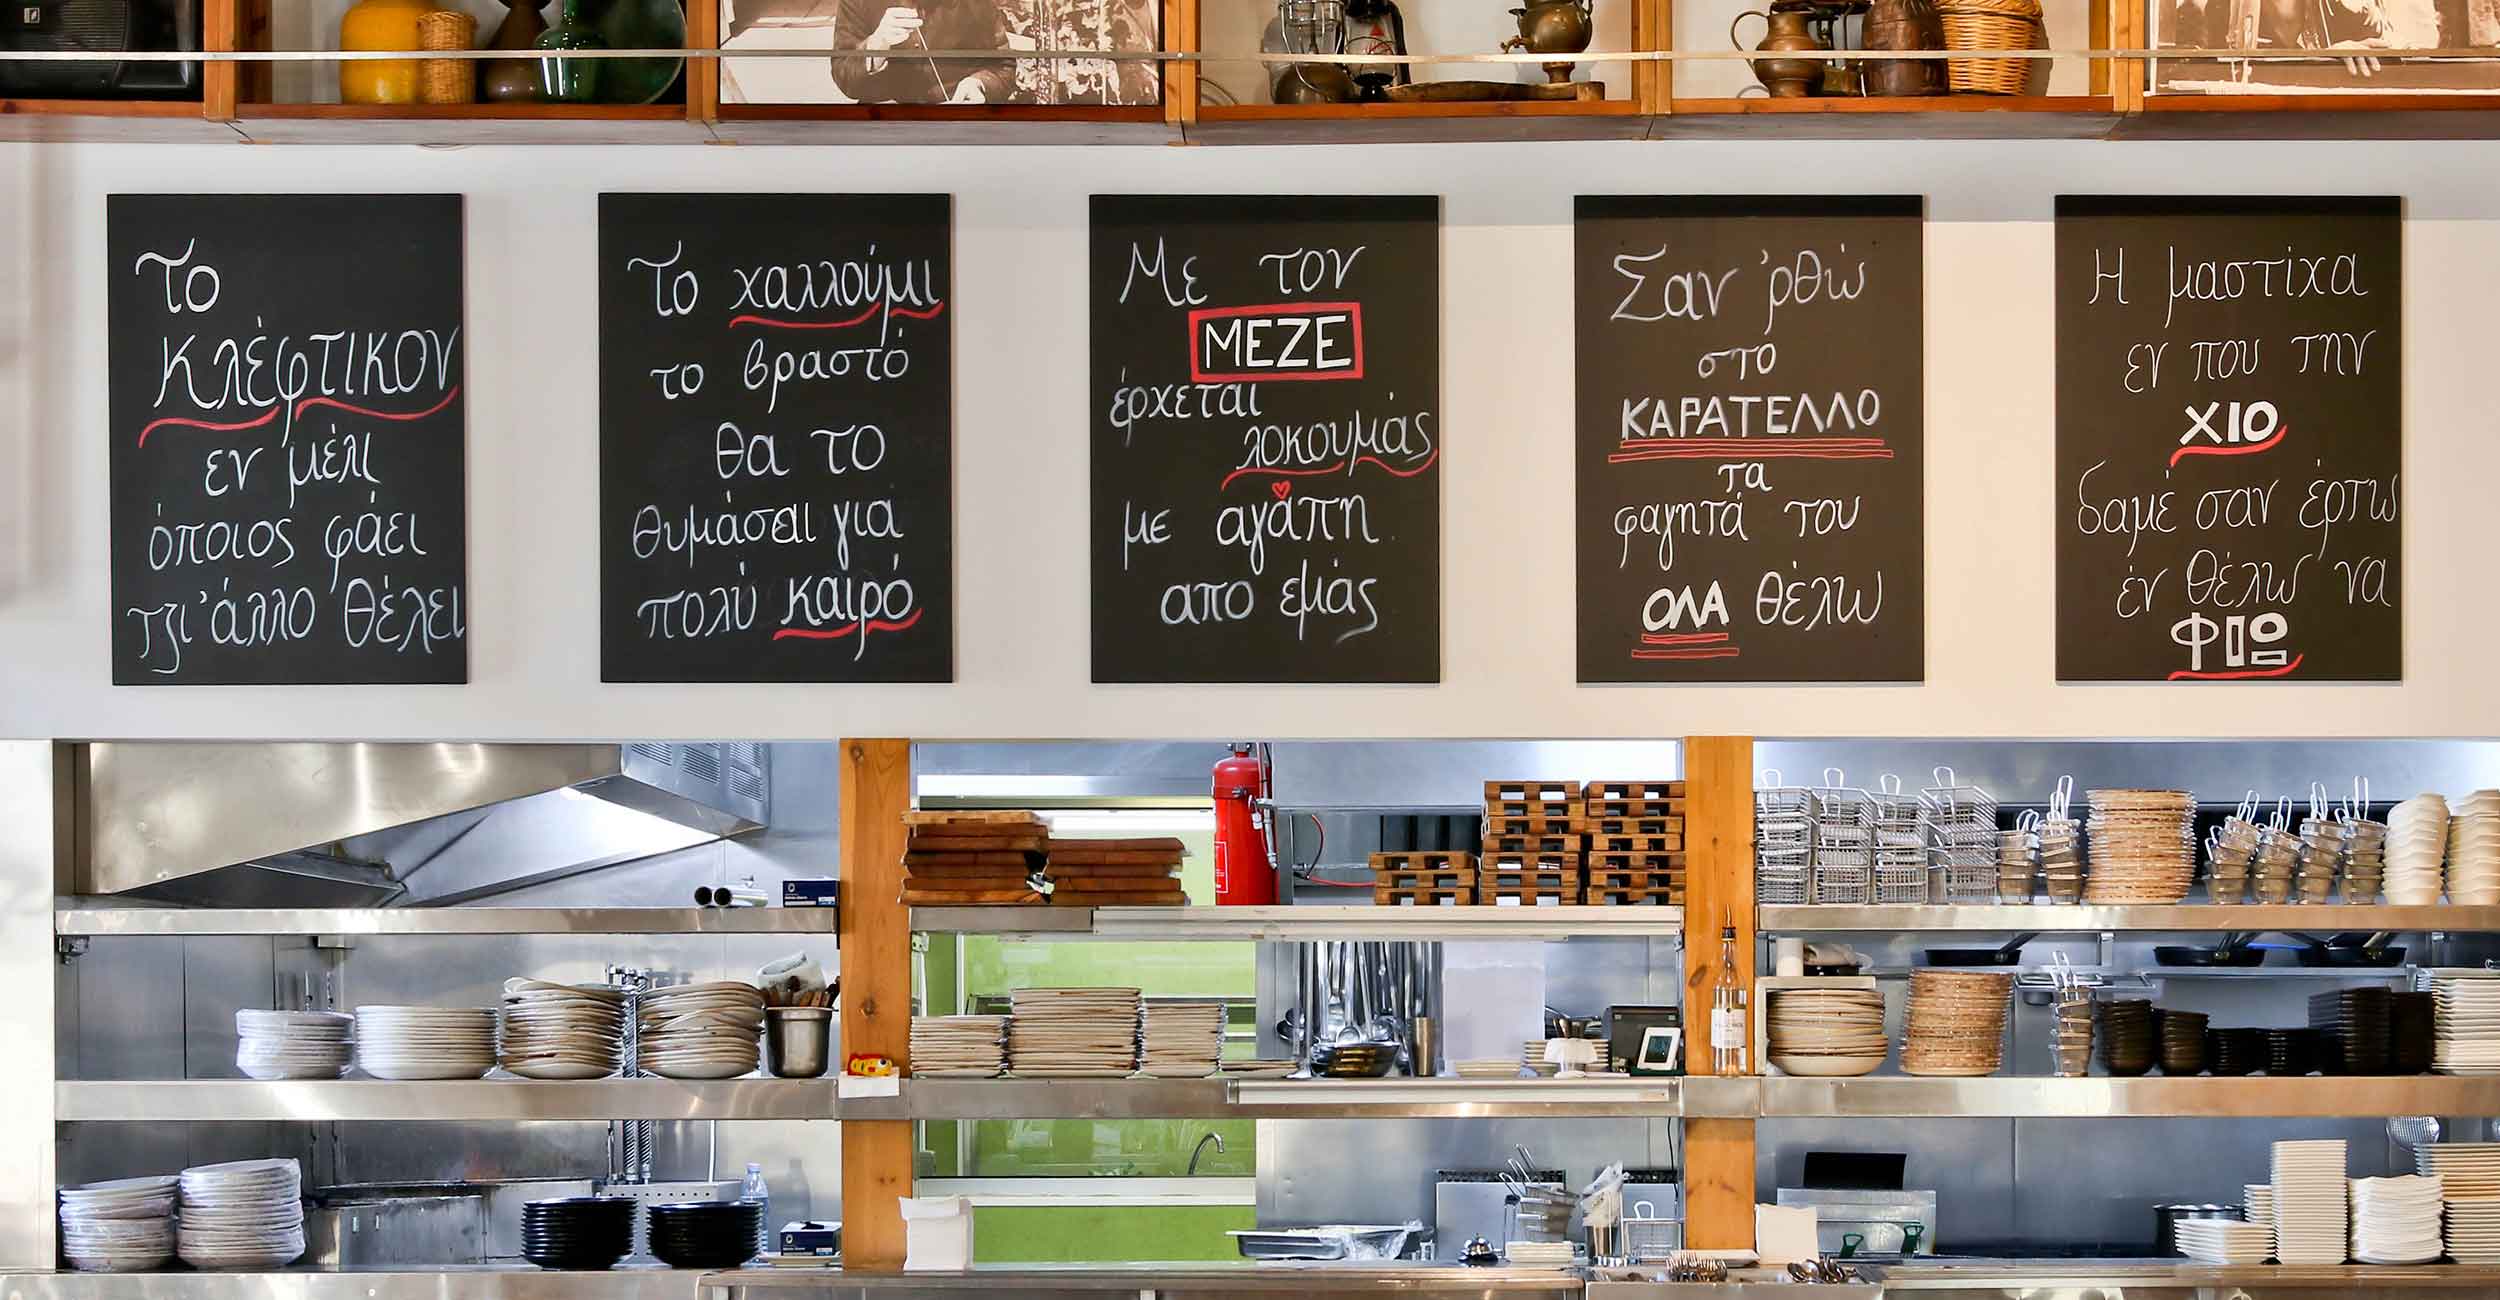 Το
Κλέφτικον
εν μέλι
όποιος φάει
τζι'άλλο 'θέλει
Το χαλλούμι
το βραστό
θα το
θυμάσαι για
πολύ καιρό
Με τον
ΜΕΖΕ
έρχεται
λοκουμάς
με αγάπη
απο εμάς
Σαν 'ρθώ
στο
ΚΑΡΑΤΕΛΛΟ
τα
φαγητά του
ΟΛΑ θέλω
Η μαστίχα
εν που την
ΧΙΟ
δαμέ σαν έρτω
έν θέλω να
ΦΙΩ